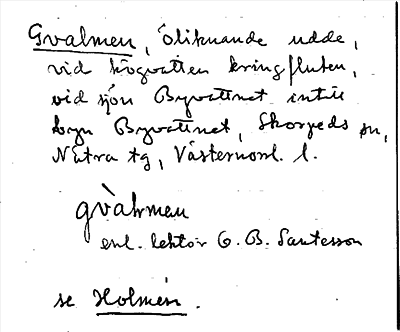 Gvalmen, öliknande udde,
vid högvatten kringfluten,
vid sjön Byvattnet intill
byn Byvattnet, Skorpeds sn,
Nätra tg, Västernorrl. l.
gvàhmen
enl. lektor O. B. Santesson
se Holmen.